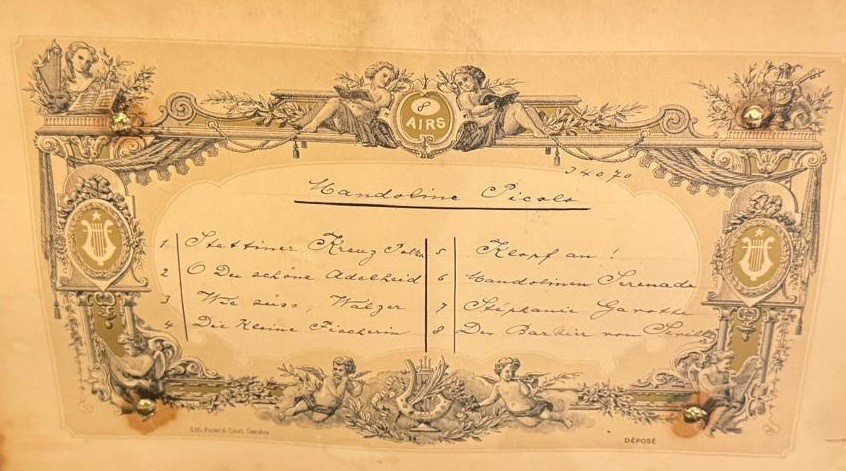 8
AIRS
34070
Mandoline Picolo
1 Stettiner Kreuz Polka
2 O Du schöne Adelheid
3 Wie süss, Walzer
4 Die Kleine Fischerin
5 Klopf an!
6 Mandolinen Serenade
7 Stéphanie Gavotte
8 Der Barbier von Sevilla
DÉPOSÉ